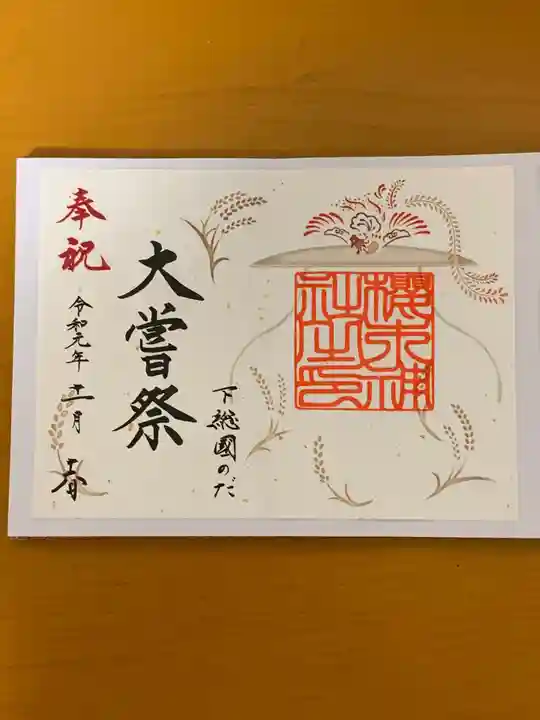 櫻木神
社之印
下総國のだ
大嘗祭
奉祝
令和元年十一月
春